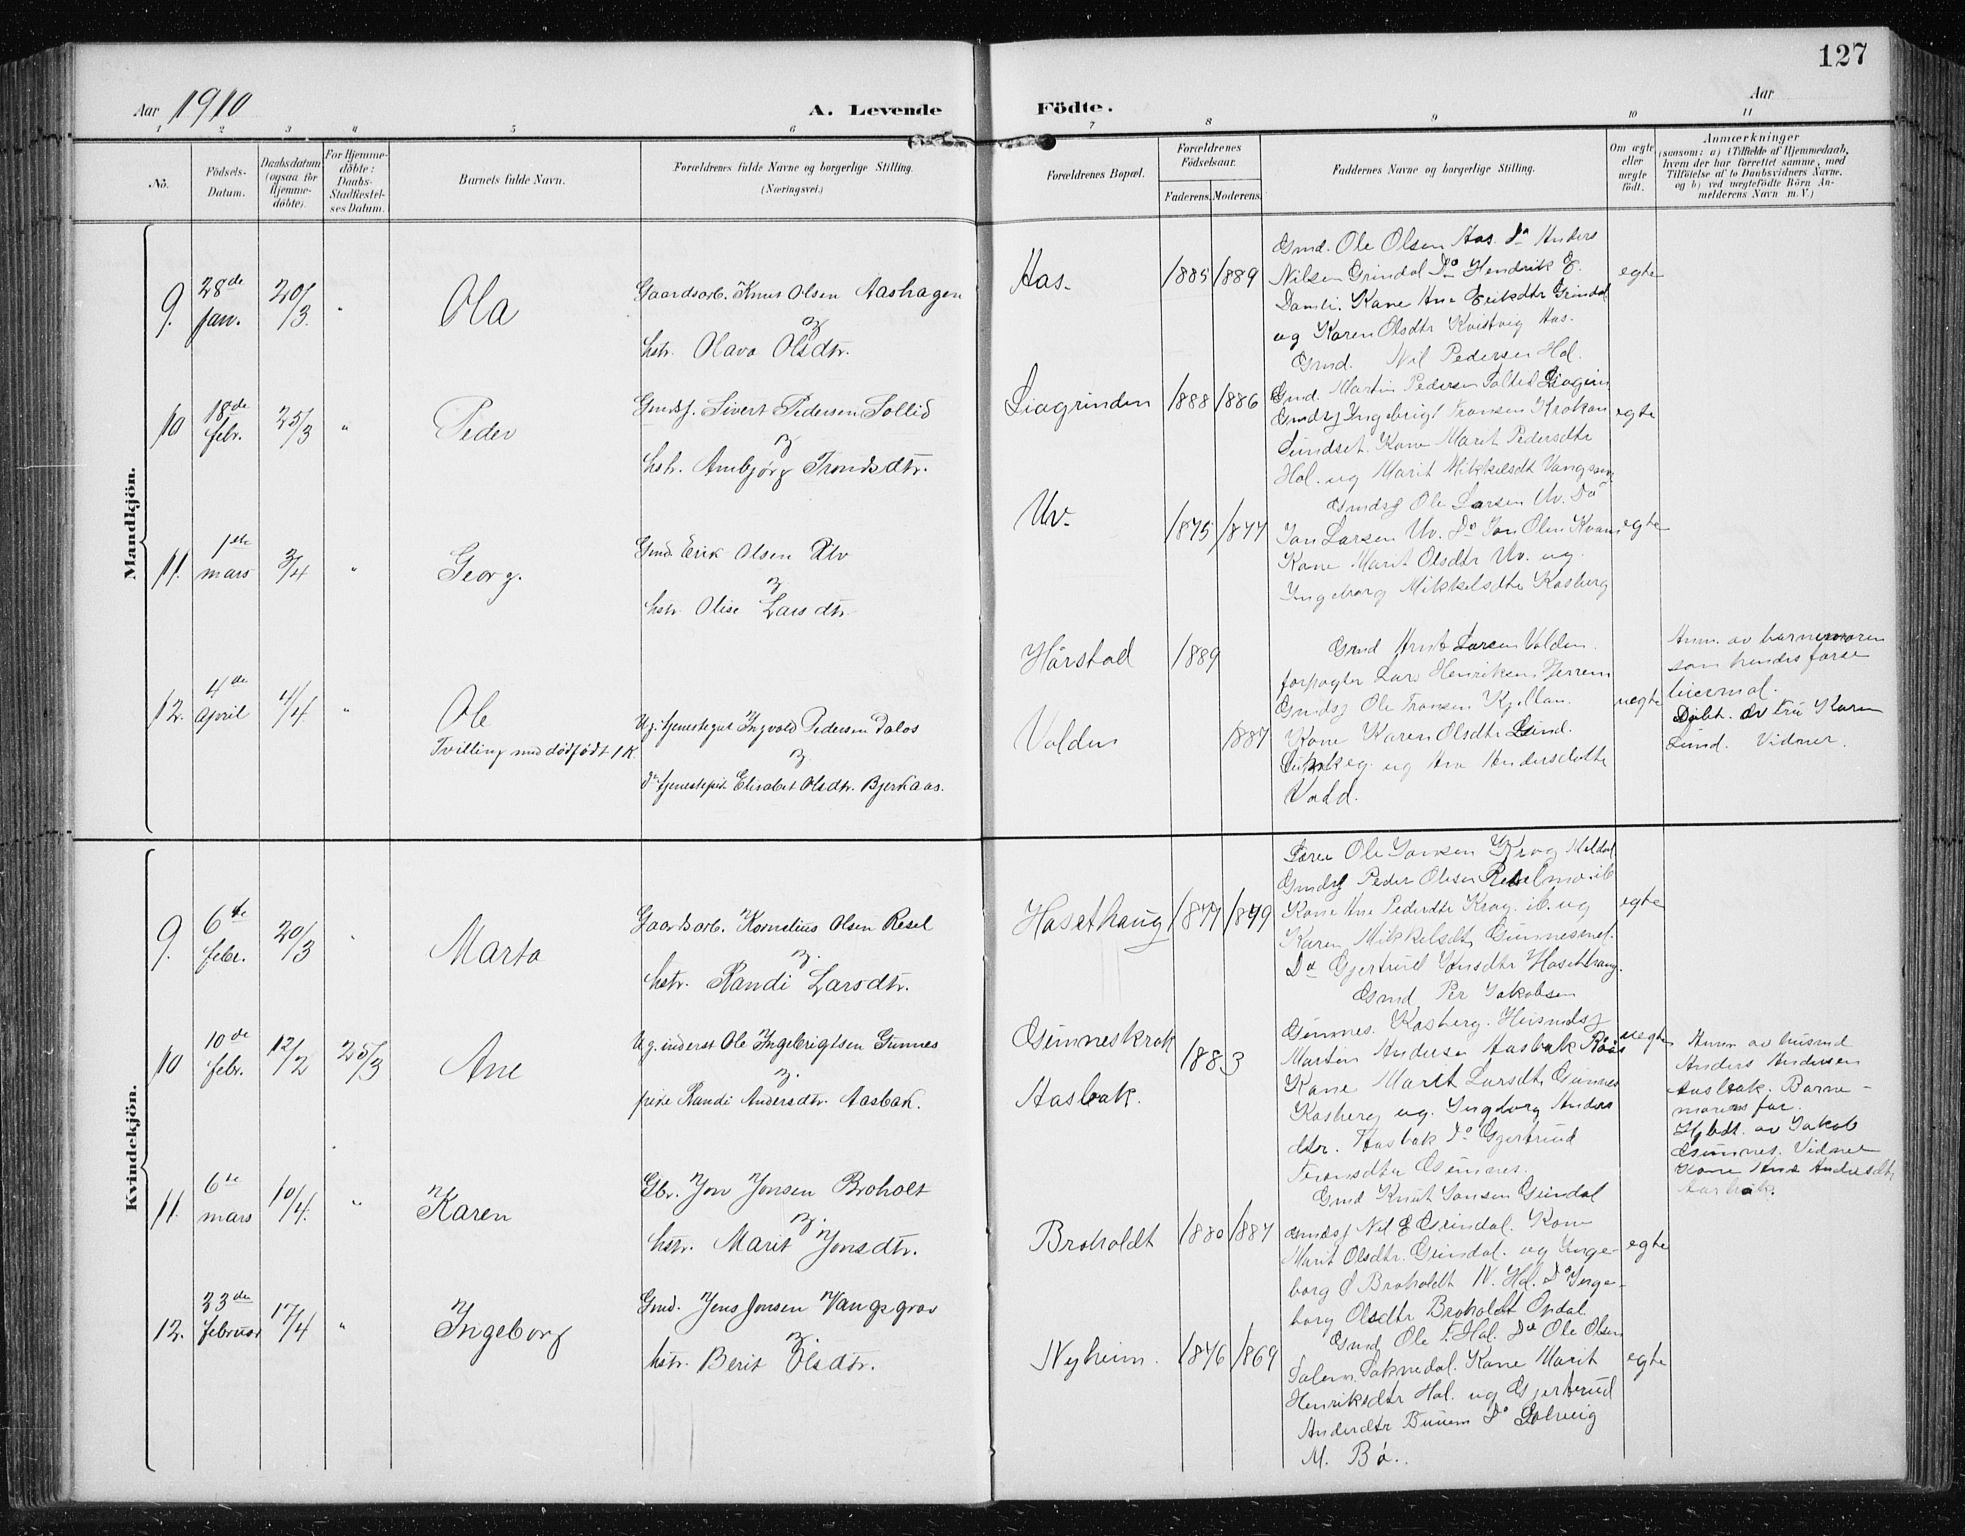 127
Aar 1910
A. Levende Födte.
Aar
1 2 3 4 5 6 7 8 9 10 11
No.
Födsels-Datum.
Daabsdatum (ogsaa for Hjemme-döbte).
For Hjemme-döbte: Daabs-Stadfæstel-ses Datum.
Barnets fulde Navn.
Forældrenes fulde Navne og borgerlige Stilling. (Næringsvei.)
Forældrenes Bopæl.
Forældrenes Födselsaar.
Faderens. Moderens.
Faddernes Navne og borgerlige Stilling.
Om ægte eller uægte födt.
Anmærkninger
(saasom: a) i Tilfælde af Hjemmedaab, hvem der har forrettet samme, med Tilföielse af to Daabsvidners Navne, og b) ved uægtefödte Börn An-melderens Navn m. V.)
Mandkjön.
9. 28de jan. 20/3. " Ola
Gaardsarb. Knut Olsen Aashagen
og
hstr. Olava Olsdtr.
Aas. 1885 1889
Gmd. Ole Olsen Aas. Do Anders
Nilsen Grindal Do Hendrik E.
Damli. Kone Ane Eriksdtr Grindal
og Karen Olsdtr Kvistvig Aas.
egte
10 18de febr. 25/3 " Peder
Gmdsj. Sivert Pedersen Sollid
og
hstr. Ambjørg Trondsdtr.
Liagrinden 1888 1886
Gmd. Nil Pedersen Hol.
Gmd. Martin Pedersen
Gmdsj Ingebrigt Tronsen Krokan
Sundset. Kone Marit Pedersdtr
Hol. og Marit Mikkelsdt
egte
11. 1ste mars 3/4 " Georg.
Gmd. Erik Olsen Uv
og
hstr Olise Larsdtr.
Uv. 1875 1877
Gmdsj Ole Larsen Uv. Do
Jon Larsen Uv. Do Jon Olsen
Kone Marit Olsdtr Uv. og
Ingeborg Mikkelsdtr Kosberg
egte
12. 4de April 4/4 " Ole
Tvilling med dödfödt 1 K.
Ug. tjenestegut Ingvald Pedersen Dalos
og
do tjenestepik. Elisabet Olsdtr. Bjerkaas.
Hårstad 1889
Volden 1887
Gmd Arnt Larsen Volden.
forpagter Lars Henriksen Jerrem
Gmdsj Ole Tronsen
Kone Karen Olsdtr Lund.
og Ane Andersdatte
Vold.
uegte
Anm. av barnemoren
som hendes første
leiermal.
Døbt. av fru Karen
Lund. Vidner.
Kvindekjön.
9. 6te febr. 20/3 " Marta
Gaardsarb. Kornelius Olsen Resel
og.
hstr. Randi Larsdtr.
Hasethaug 1877 1879
Lærer Ole Jonsen Krog Meldal
Gmdsj Peder Olsen ib
Kone Ane Pedersdtr Krog. ib. og
Karen Mikkelsdt
Do Gjertrud Hasethaug.
egte
10 10de febr. 12/2 25/3 Ane
Ug. inderst Ole Ingebrigtsen Gunnes
og.
pike Randi Andersdtr. Aasbak.
Gunneskrok
Aasbak. 1883
Gmd Per Jakobsen
Gunnes. Kosberg. Husmdsj
Martin Andersen Aasbak
Kone Marit Larsdt. Gunnes
Kosberg og. Ingeborg Anders
dtr. Aasbak Do Gjertrud
Tronsdtr Gunnes.
uegte
Anm av husmd
Anders Andersen
Aasbak. Barne-
morens far.
Hjbdt. av Jakob
Gunnes. Vidner
Kone Ane Andersdt.
Aasbak.
11. 6te mars 10/4. " Karen
Gbr. Jon Jonsen Broholt
og.
hstr. Marit Jonsdtr.
Broholdt 1880 1887
Gmd Knut Jonsen Grindal
Gmdsj Nil E Grindal. Kone
Marit Olsdtr. Grindal. og Inge-
borg O Broholdt N. Hol. Do Inge-
borg Olsdtr Broholdt Opdal.
egte
12. 23de februar 17/4 " Ingeborg
Gmd. Jens Jonsen Vangsgrav
og.
hstr. Berit Olsdtr.
Nyheim. 1876 1869
Gmd Ole T. Hol. Do Ole Olsen
Soknedal. Kone Marit
Henriksdtr Hol. og Gjertrud
Andersdtr Do Solveig
M. Bø.
egte